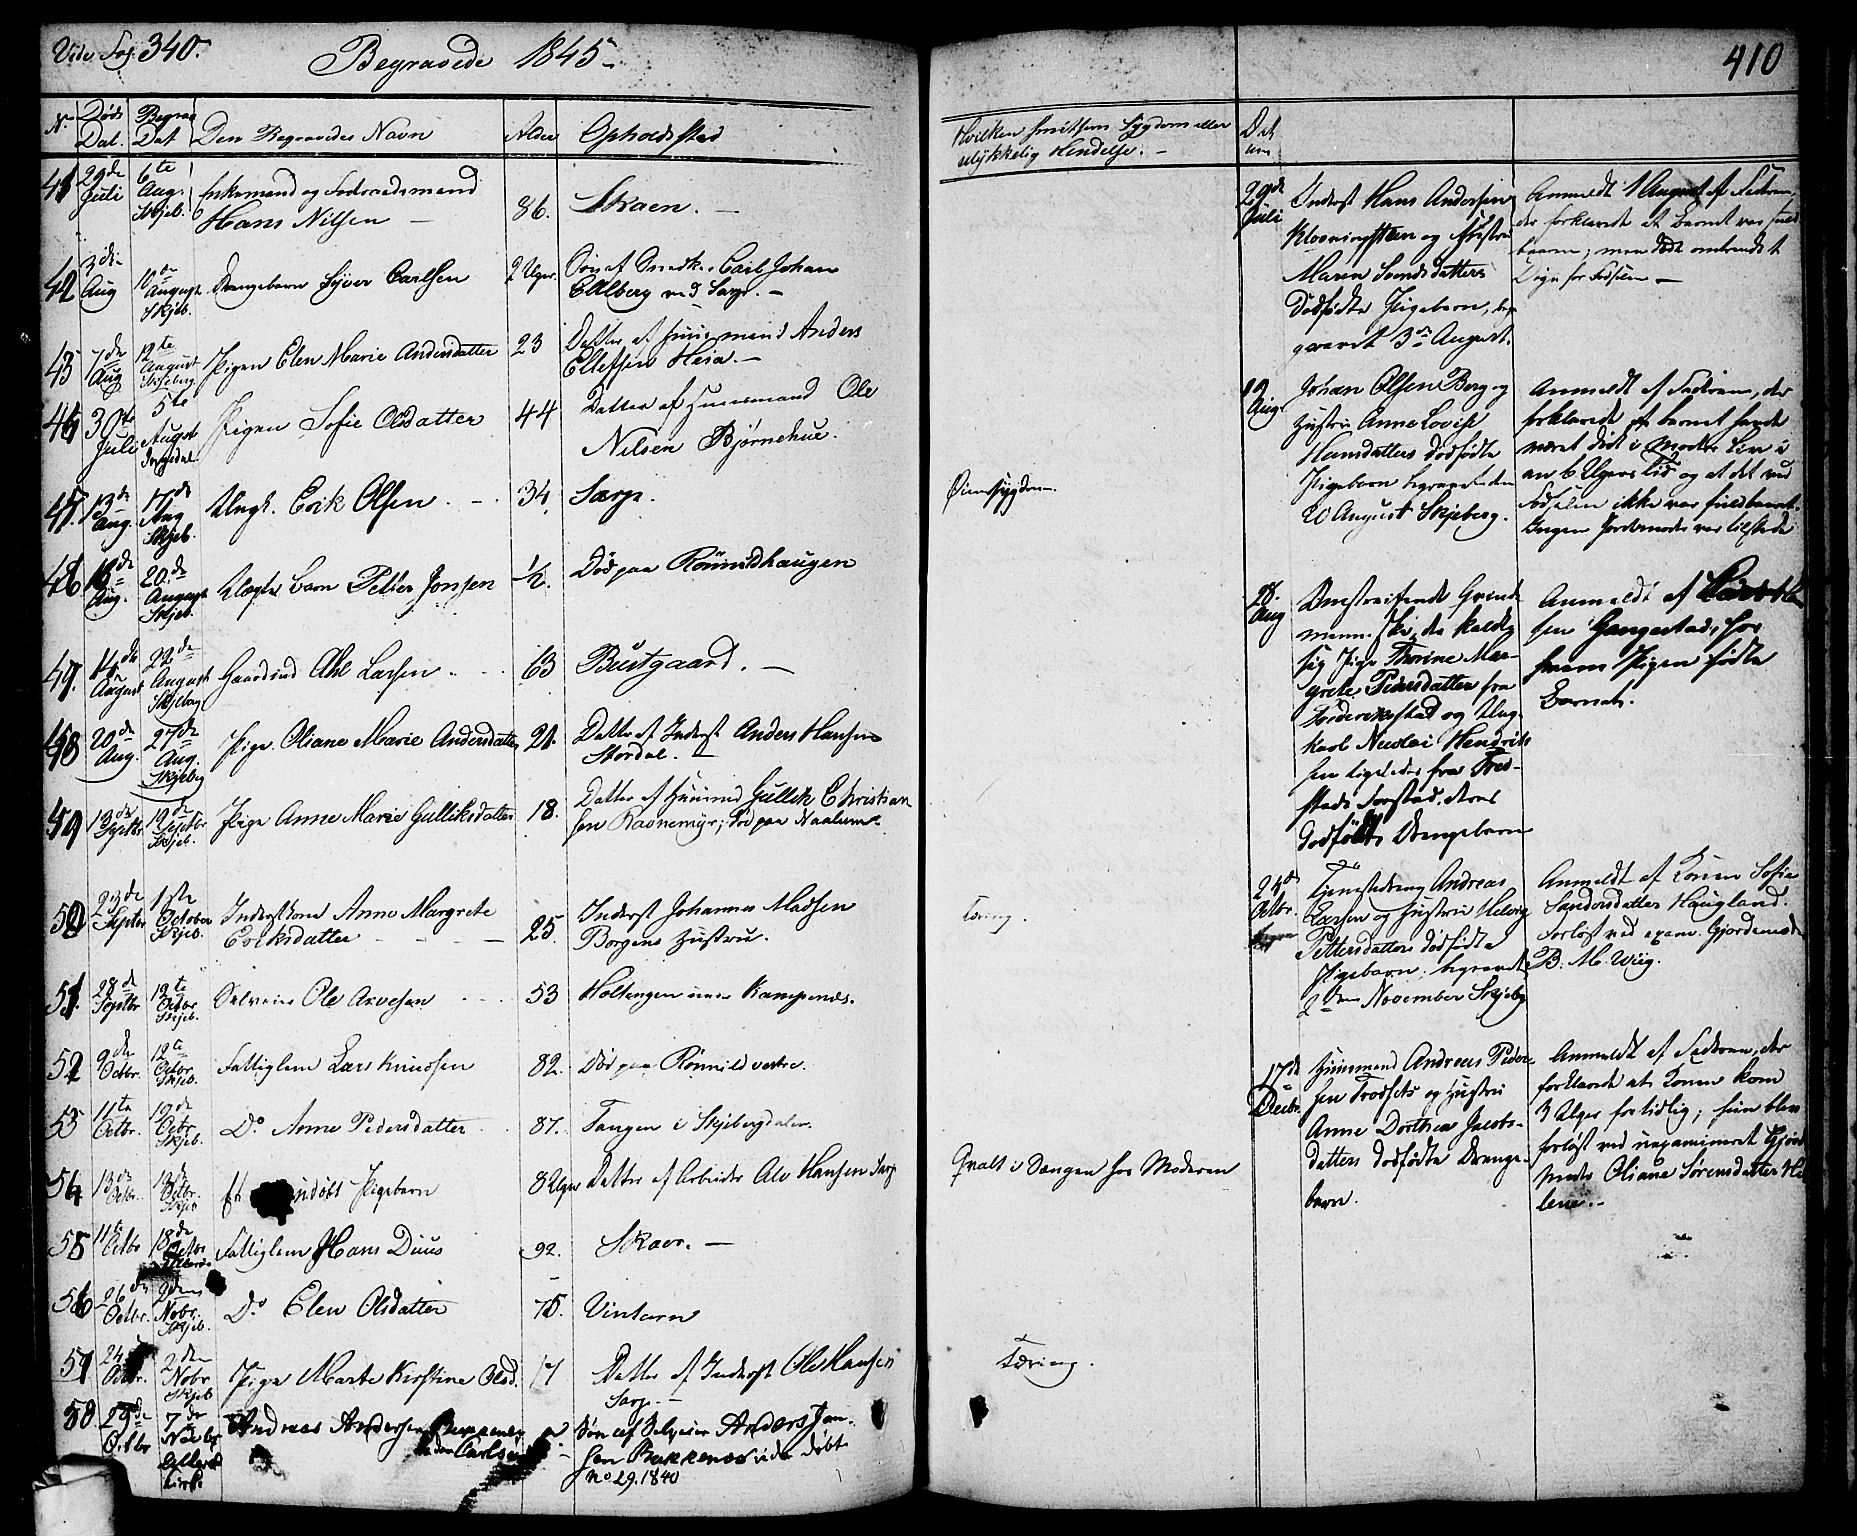 Vide Fol. 340.
Begravede 1845
N. Døds Dat. Begrav Dat Den Begravedes Navn Alder Opholdsstad
41 29de Juli 6te Aug. Skjeb. Enkemand og Føderaadsmand
Hans Nilsen 86. Skaen.
42 3die Aug 10de August Skjeb. Drengebarn Syver Carlsen 2 Uger. Søn af Smed Carl Johan
Ellberg ved Sarp.
43 7de Aug 12te August Skjeberg Pigen Elen Marie Andersdatter 23 Datter af Huusmand Anders
Ellefsen Heia.
44 30te Juli 5te August Pigen Sofie Olsdatter 44 Datter af Huusmand Ole
Nilsen Bjørnehue.
45. 13de Aug. 17de Aug Skjeb. Ungk. Erik Olsen 34. Sarp.
46 16de Aug. 20de August Skjeb. Barn Petter Jonsen 1/2. Død paa Rönnildhaugen
47. 14de August 22de August Skjeberg Gaardmd Abl Larsen 63 Bustgaard.
48 20de Aug. 27de Aug. Skjeberg Pige Oliane Marie Andersdatter 21. Datter af Inderst Anders Hansen
Stordal.
49 13de Septbr 19de Septbr Skjeb. Pige Anne Marie Gulliksdatter 18. Datter af Huusmd Gullik Christian
sen Ravnemyr; død paa Naalum
50 23de Septbr 1ste October Skjeb. Inderstkone Anne Margrete
Eriksdatter 25. Inderst Johannes Madsen
Borgens Hustru.
51. 28de Septbr 12te Octbr. Skjeb. Selveier Ole Arvesen 53 Holtengen under Kampenes.
52 9de Octbr. 12te Octbr Skjeb. Fattiglem Lars Knudsen 82. Død paa Rönnild vestre.
53 11te Octbr. 19de Octbr Skjeb. Do Anne Pedersdatter 87. Tangen i Skjebergdalen
54 13de Octbr. 19de Octbr. Skjeb Et udøbt Pigebarn 8 Uger Datter af Arbeider Ole Hansen Sarp
55 11te Octbr 18de Octbr Fattiglem Hans Duus 92. Skaer.
56 26de Octbr. 2den Nobr. Skjeb. Do Elen Olsdatter 75. Vintarn
57 24 Octbr. 2den Nobr Skjeb Pige Marte Kirstine Olsd. 17 Datter af Inderst Ole Hansen
Sarp.
58. 29de Octbr 7de Nobr Andreas Andersen
Carlsen Søn af Selveier Anders Jan-
sen Bakkenes vide døbt
No 29. 1840
410
Hvilken smitsom Sygdom eller
ulykkelig Hendelse.
Datum
Øiensygdom.
Tæring.
Qvalt i Sengen hos Moderen
Tæring.
29de Juli
Inderst Hans Andersen
Kloxningsteen og Hustru
Maren Svendsdatters
dødfødte Pigebarn, be
gravet 3die August.
Anmeldt 1 August af Faderen,
der forklarede at Barnet var fuld
baaren; men død omtrendt 1
Døgn før Fødselen
12 Aug
Johan Olsen Berg og
Hustru Anne Lovise
Hansdatters dødfødte
Pigebarn begravet den
20 August Skjeberg.
Anmeldt af Faderen, der
forklarede at barnet havde
været dødt i Moders Liv i
en 6 Ugers Tid og at det ved
Fødselen ikke var fuldbaaret.
Ingen Jordemoder var tilstede
28. Aug
Omstreifende
kalder
sig Pige Thorine Mar-
grete Pedersdatter fra
Frederikstad og Ung-
karl Nicolai Hendrik
sen ligeledes fra Fred-
stads Forstad. deres
dødfødte Drengebarn
Anmeldt af
sen Gangestad, hos
hvem Pigen fødte
Barnet.
25de Octbr.
Tjenestedreng Andreas
Larsen og Hustru Helvig
Pettersdatters dødfødte
Pigebarn. begravet
2den November Skjeberg
Anmeldt af Konen Sofie
Sandersdatter Haugland.
Forløst ved exam. Gjordemoder
B. M. Wiig.
17de Decbr.
Huusmand Andreas Peder
sen Trodsets og Hustru
Anne Dorthea Jacobs-
datters dødfødte Drenge-
barn.
Anmeldt af Faderen, der
forklarede at Konen kom
3 Uger for tidlig; hun blev
forløst ved uexamineret Gjorde
moder Oliane Sørensdatter He
lene.